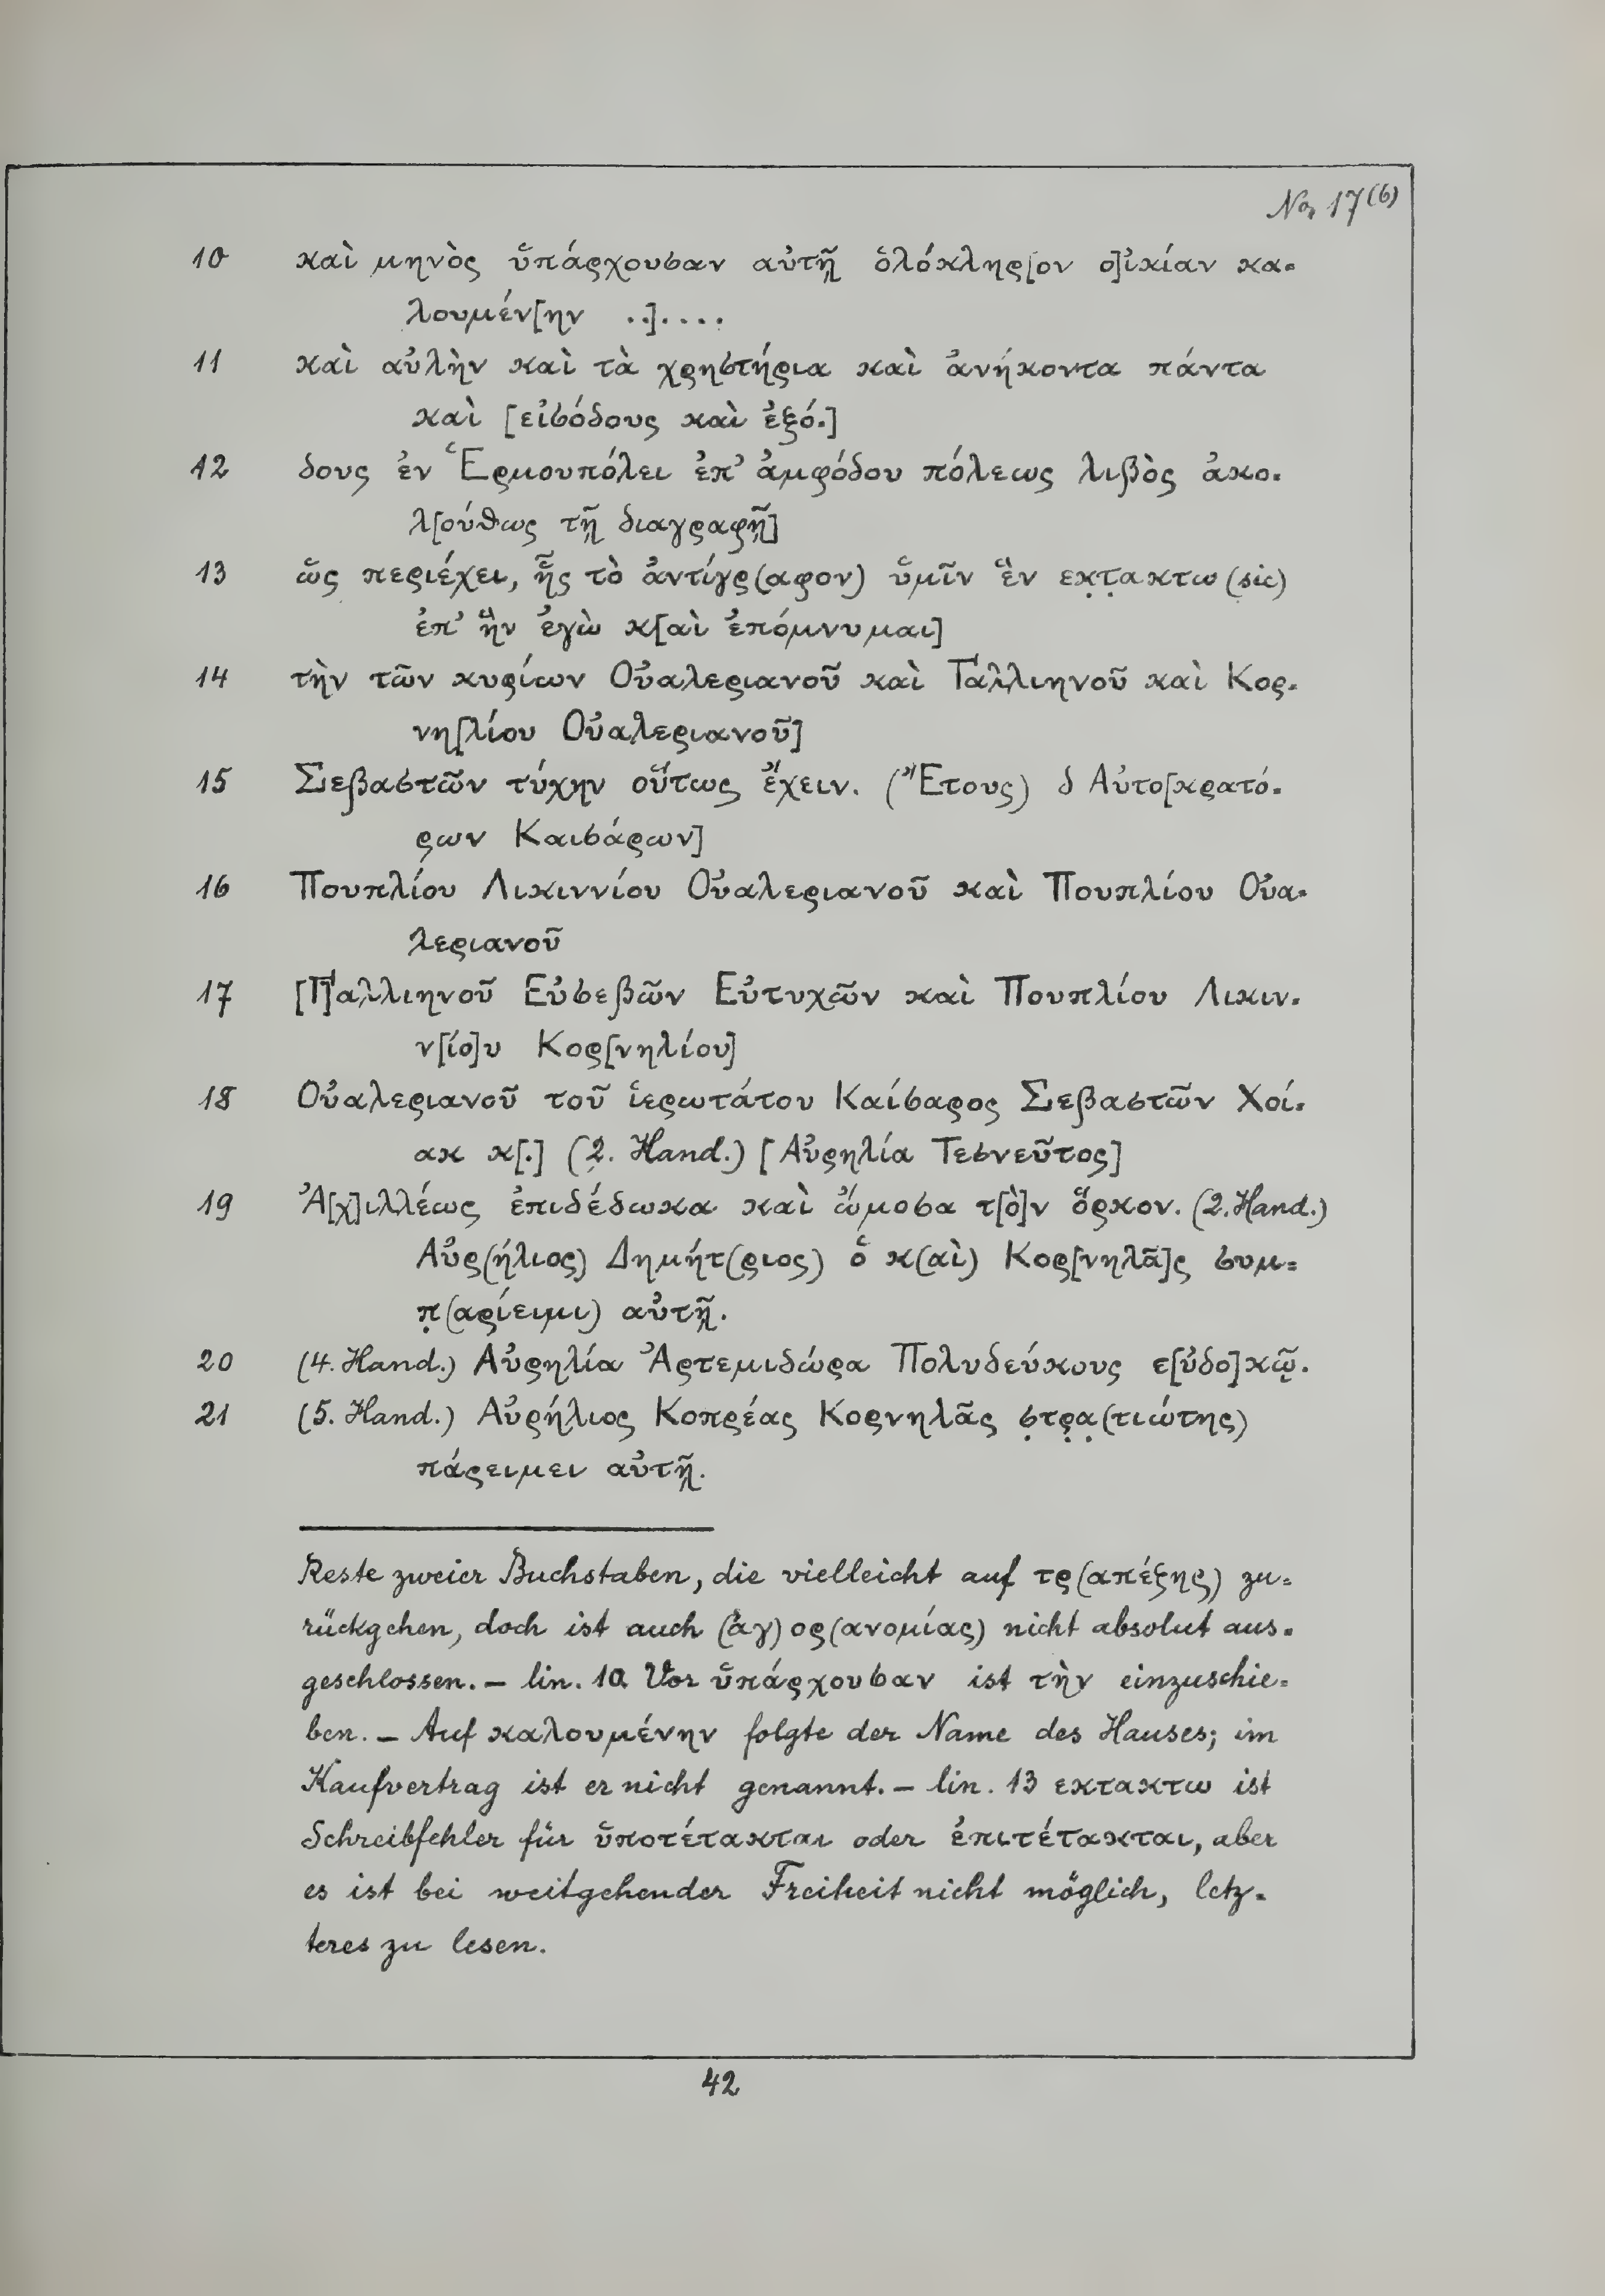 No. 17(b)
10 καὶ μηνὸς ὑπάρχουσαν αὐτῇ ὁλόκληρ[ον ο]ἰκίαν κα-
λουμέν[ην ..]....
11 καὶ αὐλὴν καὶ τὰ χρηστήρια καὶ ἀνήκοντα πάντα
καὶ [εἰσόδους καὶ ἐξό-]
12 δους ἐν Ἑρμουπόλει ἐπ’ ἀμφόδου πόλεως λιβὸς ἀκο-
λ[ούθως τῇ διαγραφῇ]
13 ὡς περιέχει, ἧς τὸ ἀντίγρ(αφον) ὑμῖν ἓν εκ̣τ̣ακτω (sic)
ἐπ’ ἣν ἐγὼ κ[αὶ ἐπόμνυμαι]
14 τὴν τῶν κυρίων Οὐαλεριανοῦ καὶ Γαλλιηνοῦ καὶ Κορ-
νη[λίου Οὐαλεριανοῦ]
15 Σεβαστῶν τύχην οὕτως ἔχειν. (Ἔτους) δ Αὐτο[κρατό-
ρων Καισάρων]
16 Πουπλίου Λικιννίου Οὐαλεριανοῦ καὶ Πουπλίου Οὐα-
λεριανοῦ
17 [Γ]αλλιηνοῦ Εὐσεβῶν Εὐτυχῶν καὶ Πουπλίου Λικιν-
ν[ίο]υ Κορ[νηλίου]
18 Οὐαλεριανοῦ τοῦ ἱερωτάτου Καίσαρος Σεβαστῶν Χοί-
ακ κ[.] (2. Hand.) [Αὐρηλία Τεσνεῦτος]
19 Ἀ[χ]ιλλέως ἐπιδέδωκα καὶ ὤμοσα τ[ὸ]ν ὅρκον. (2. Hand.)
Αὐρ(ήλιος) Δημήτ(ριος) ὁ κ(αὶ) Κορ[νηλᾶ]ς συμ-
π̣(αρίειμι) αὐτῇ.
20 (4. Hand.) Αὐρηλία Ἀρτεμιδώρα Πολυδεύκους ε[ὐδο]κῶ̣.
21 (5. Hand.) Αὐρήλιος Κοπρέας Κορνηλᾶς σ̣τρ̣α̣(τιώτης)
πάρειμει αὐτῇ.
Reste zweier Buchstaben, die vielleicht auf τρ(απέζης) zu-
rückgehen, doch ist auch (ἀγ)ορ(ανομίας) nicht absolut aus-
geschlossen. – lin. 10. Vor ὑπάρχουσαν ist τὴν einzuschie-
ben. – Auf καλουμένην folgte der Name des Hauses; im
Kaufvertrag ist er nicht genannt. – lin. 13 εκτακτω ist
Schreibfehler für ὑποτέτακται oder ἐπιτέτακται, aber
es ist bei weitgehender Freiheit nicht möglich, letz-
teres zu lesen.
42